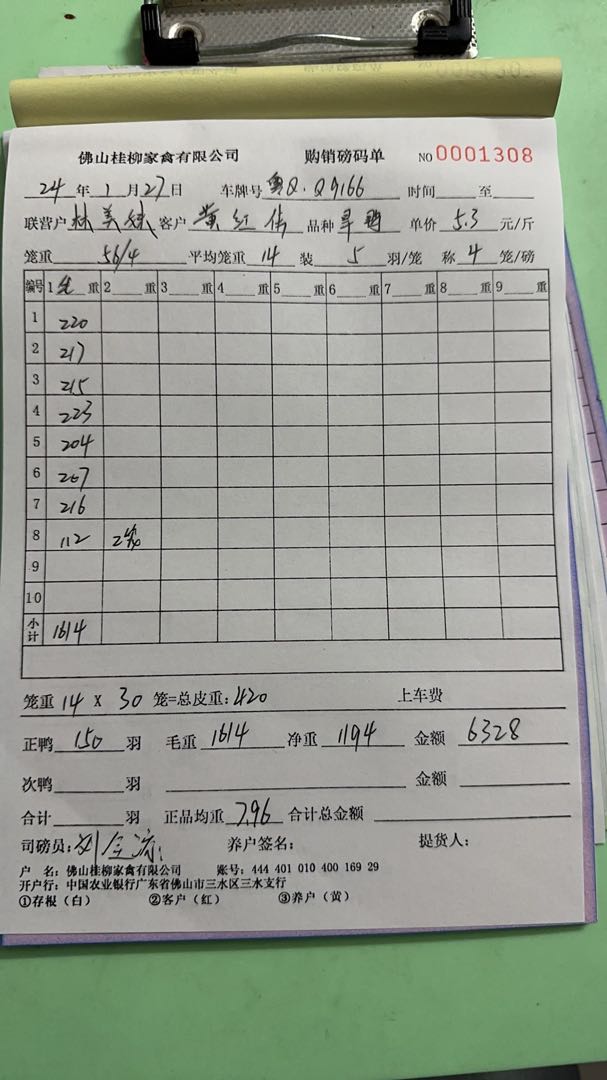 佛山桂柳家禽有限公司 购销磅码单 NO 0001308
24 年 1 月 27 日 车牌号 粤Q·Q9166 时间 至
联营户 林美 客户 黄红伟 品种 旱鸭 单价 5.3 元/斤
笼重 56/4 平均笼重 14 装 5 羽/笼 称 4 笼/磅
编号 1 毛 重 2 重 3 重 4 重 5 重 6 重 7 重 8 重 9 重
1 220
2 217
3 215
4 223
5 204
6 207
7 216
8 112 2笼
9
10
小计 1614
笼重 14 X 30 笼=总皮重: 420 上车费
正鸭 150 羽 毛重 1614 净重 1194 金额 6328
次鸭 羽 金额
合计 羽 正品均重 7.96 合计总金额
司磅员: 刘 养户签名: 提货人:
户 名: 佛山桂柳家禽有限公司 账号: 444 401 010 400 169 29
开户行: 中国农业银行广东省佛山市三水区三水支行
①存根（白） ②客户（红） ③养户（黄）